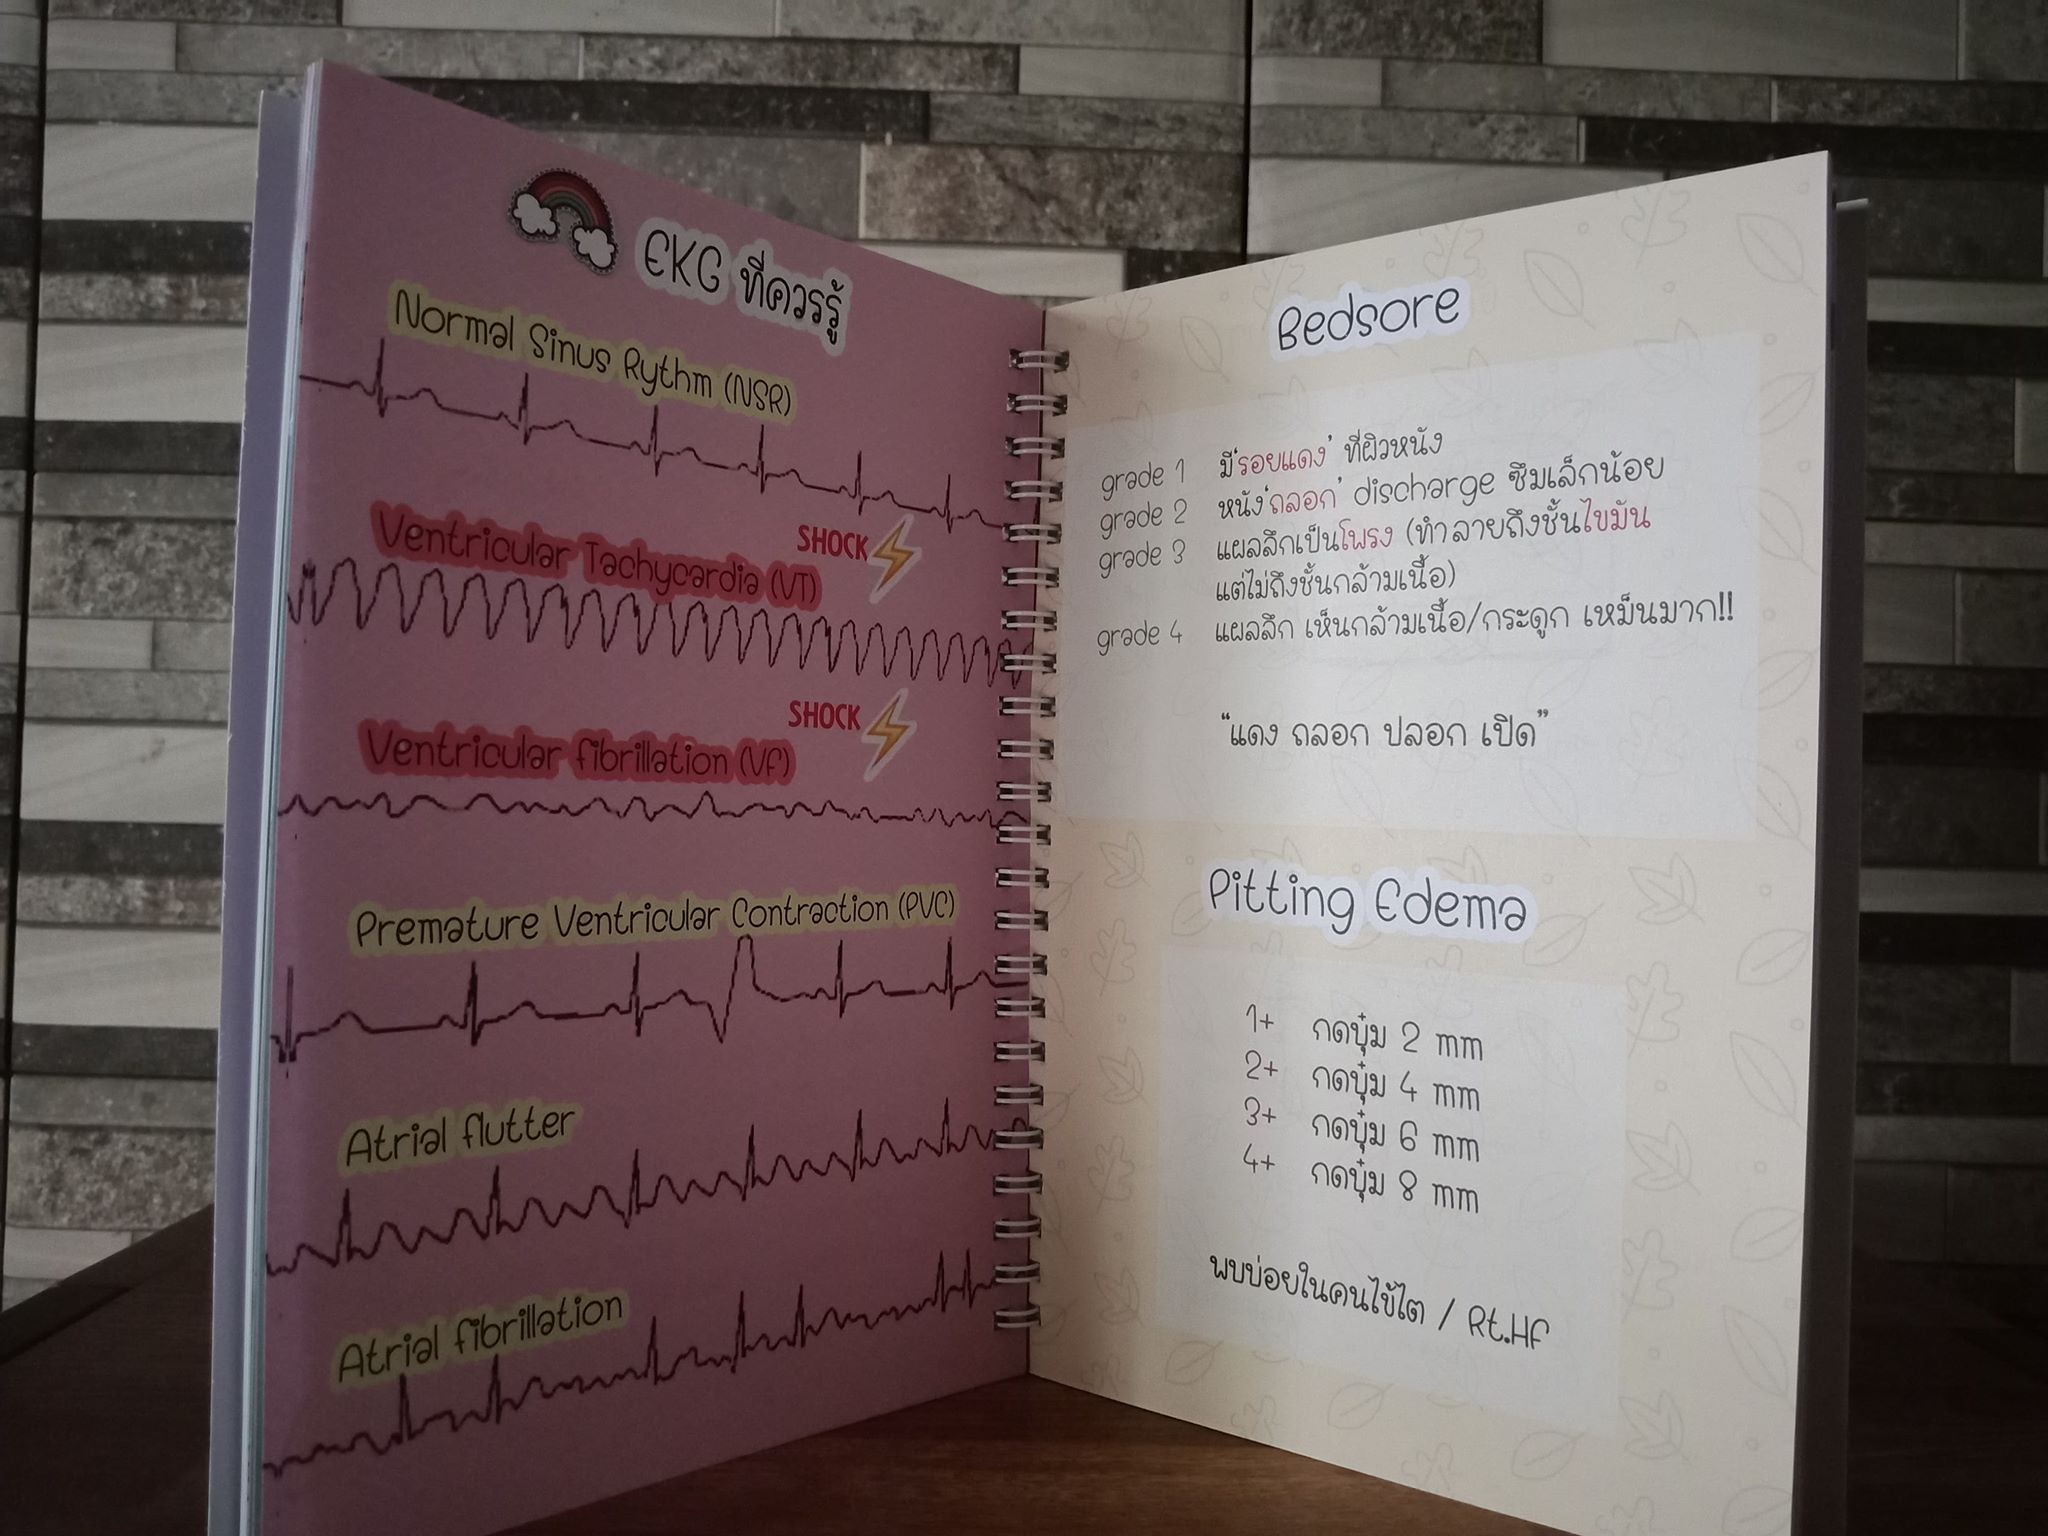 EKG ที่ควรรู้
Normal Sinus Rythm (NSR)
Ventricular Tachycardia (VT)
SHOCK
Ventricular fibrillation (Vf)
SHOCK
Premature Ventricular Contraction (PVC)
Atrial flutter
Atrial fibrillation
Bedsore
grade 1 มี'รอยแดง' ที่ผิวหนัง
grade 2 หนัง'ถลอก' discharge ซึมเล็กน้อย
grade 3 แผลลึกเป็นโพรง (ทำลายถึงชั้นไขมัน
แต่ไม่ถึงชั้นกล้ามเนื้อ)
grade 4 แผลลึก เห็นกล้ามเนื้อ/กระดูก เหม็นมาก!!
"แดง ถลอก ปลอก เปิด"
Pitting Edema
1+ กดบุ๋ม 2 mm
2+ กดบุ๋ม 4 mm
3+ กดบุ๋ม 6 mm
4+ กดบุ๋ม 8 mm
พบบ่อยในคนไข้ไต / Rt.Hf